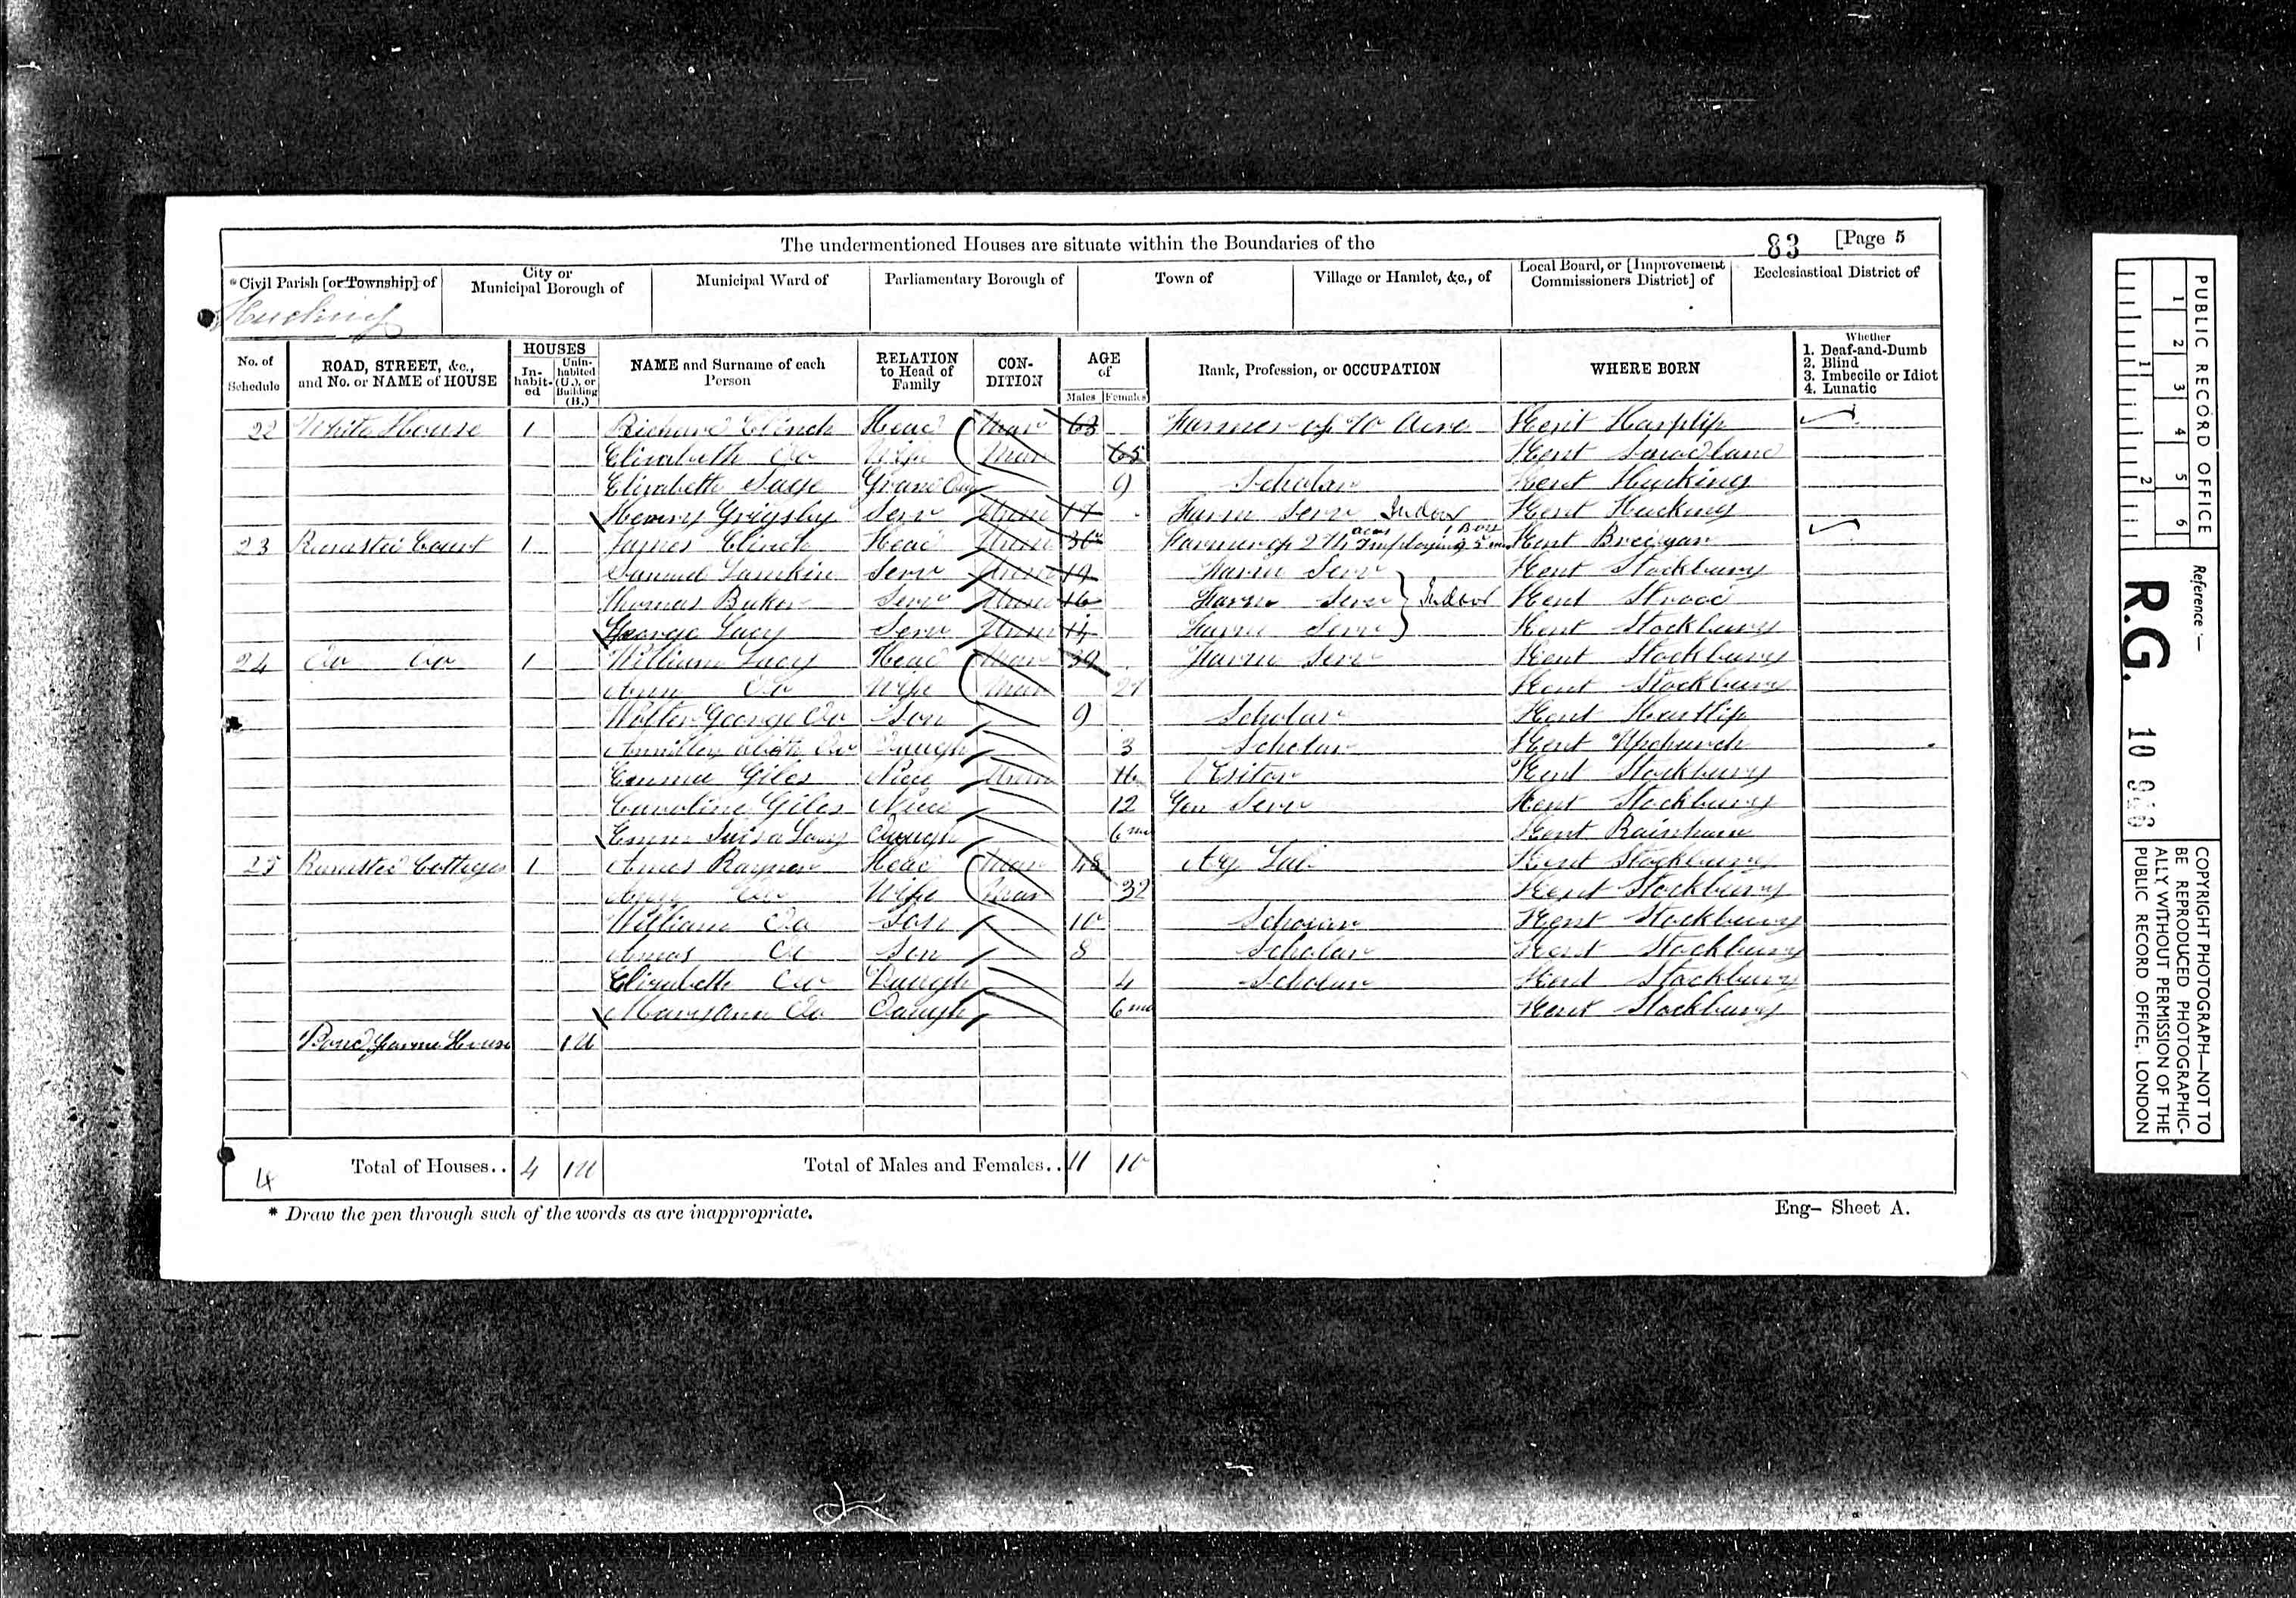 The undermentioned Houses are situate within the Boundaries of the 83 [Page 5
*Civil Parish [or Township] of
City or Municipal Borough of
Municipal Ward of
Parliamentary Borough of
Town of
Village or Hamlet, &c., of
Local Board, or [Improvement Commissioners District] of
Ecclesiastical District of
Hucking
No. of Schedule
ROAD, STREET, &c., and No. or NAME of HOUSE
HOUSES
In-habit-ed
Unin-habited (U.), or Building (B.)
NAME and Surname of each Person
RELATION to Head of Family
CON-DITION
AGE of
Males Females
Rank, Profession, or OCCUPATION
WHERE BORN
Whether
1. Deaf-and-Dumb
2. Blind
3. Imbecile or Idiot
4. Lunatic
22 White House 1 Richard Clinch Head Mar 63 Farmer of Acre Kent Hartlip
Elizabeth Do Wife Mar 65 Kent Snodland
Elizabeth Grand Dau 9 Scholar Kent Hucking
Henry Grigsby Serv Unm 17 Farm Serv Indoor Kent Hucking
23 Court 1 James Clinch Head Unm 30 Farmer of acres Employing 5 men 1 Boy Kent Bredgar
Samuel Lamkin Serv Unm 19 Farm Serv Kent Stockbury
Thomas Baker Serv Unm 16 Farm Serv Indoor Kent Strood
George Lacy Serv Unm 14 Farm Serv Kent Stockbury
24 Do Do 1 William Lacy Head Mar 39 Farm Serv Kent Stockbury
Ann Do Wife Mar 27 Kent Stockbury
Walter George Do Son 9 Scholar Kent Hartlip
Do Daugh 3 Scholar Kent Upchurch
Emma Giles Niece Unm 16 Visitor Kent Stockbury
Caroline Giles Niece 12 Gen Serv Kent Stockbury
Lacy Daugh 6 mo Kent Rainham
25 Cottages 1 Amos Rayner Head Mar 48 Ag Lab Kent Stockbury
Do Wife Mar 32 Kent Stockbury
William Do Son 10 Scholar Kent Stockbury
Amos Do Son 8 Scholar Kent Stockbury
Elizabeth Do Daugh 4 Scholar Kent Stockbury
Mary Ann Do Daugh 6 mo Kent Stockbury
Pond Farm House 1U
4 Total of Houses.. 4 1U Total of Males and Females.. 11 10
* Draw the pen through such of the words as are inappropriate.
Eng- Sheet A.
PUBLIC RECORD OFFICE
1 2 3 4 5 6
1 2
Reference:—
R.G. 10
COPYRIGHT PHOTOGRAPH—NOT TO
BE REPRODUCED PHOTOGRAPHIC-
ALLY WITHOUT PERMISSION OF THE
PUBLIC RECORD OFFICE, LONDON